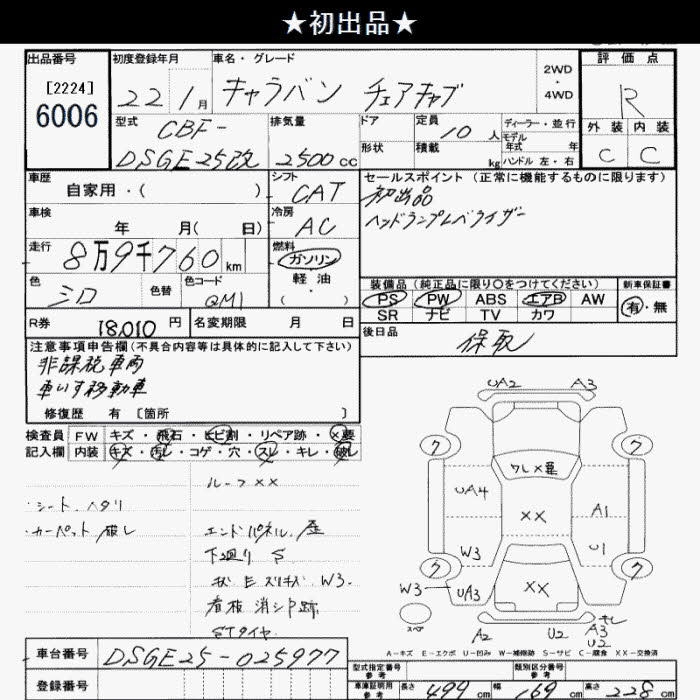 ★初出品★
出品番号 初度登録年月 車名・グレード 2WD ・ 4WD 評価点
[2224]
6006
22 1月 キャラバン チェアキャブ R
型式 排気量 ドア 定員 10人 ディーラー・並行
モデル年式 年
外装 内装
CBF-
DSGE25改 2500cc 形状 積載 kg ハンドル 左・右 C C
車歴 シフト セールスポイント(正常に機能するものに限ります)
自家用・( ) CAT 初出品
車検 冷房 ヘッドランプレベライザー
年 月( 日) AC
走行 8万9千760km 燃料 ガソリン
軽油
・( )
色 色替 色コード 装備品(純正品に限り○をつけてください) 新車保証書
シロ QM1 PS PW ABS エアB AW 有・無
SR ナビ TV カワ
R券 18,010円 名変期限 月 日 後日品 保取
注意事項申告欄(不具合内容等は具体的に記入して下さい)
非課税車両
車いす移動車
修復歴 有 〔箇所 〕
検査員 FW キズ・飛石・ヒビ割・リペア跡・×要
記入欄 内装 キズ・汚レ・コゲ・穴・スレ・キレ・破レ
ルーフ××
・シート ヘタリ
・カーペット 破レ エンドパネル
下廻り S
W3.
看板消シ跡
STタイヤ
UA2 A3
ワ ワ
ワレ×要
UA4 ×× A1
W3 U1
ワ ワ
W3 UA3 ××
スペ A2 U2 A3
U2
A-キズ E-エクボ U-凹み W-補修跡 S-サビ C-腐食 XX-交換済
車台番号 DSGE25-025977
登録番号
型式指定番号 参考 類別区分番号 参考
車庫証明用 参考 長さ 499cm 幅 169cm 高さ 228cm